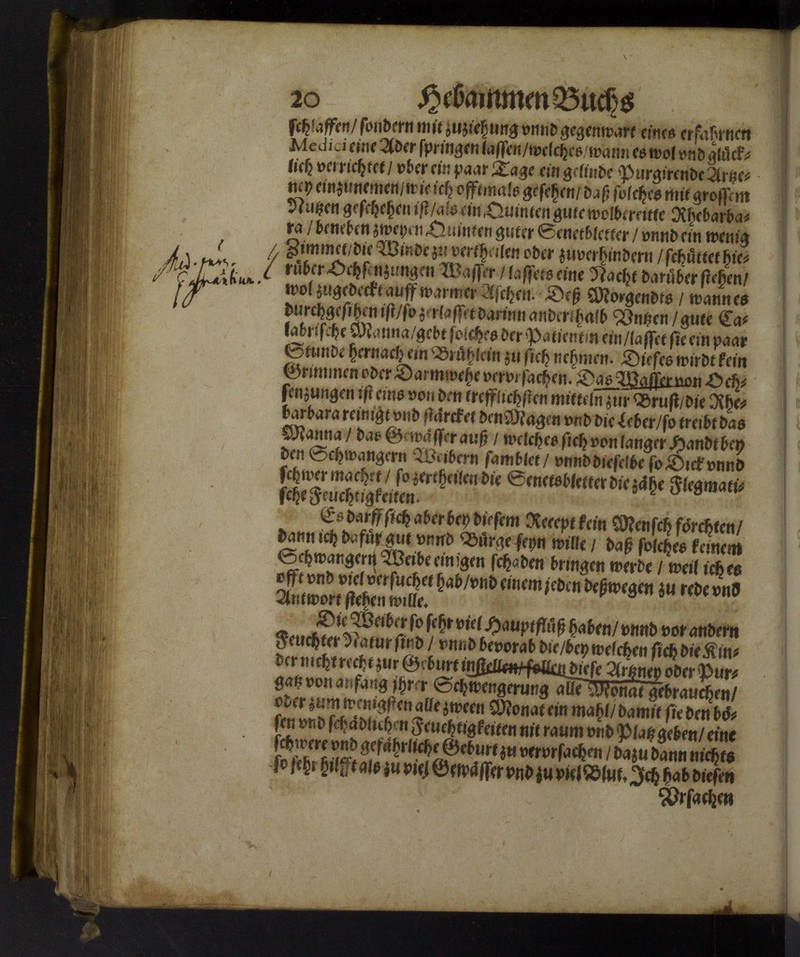 20 Hebammen Buchs
schlaffen/ sondern mit zuziehung vnnd gegenwart eines erfahrnen
Medici eine Ader springen lassen/welches/wann es wol vnd glück⸗
lich verrichtet / vber ein paar Tage ein gelinde Purgirende Artze⸗
ney einzunemen/wie ich offtmals gesehen/ daß solches mit grossem
Nutzen geschehen ist/als ein Quinten gute wolbereitte Rhebarba⸗
ra / beneben zweyen Quinten guter Senetbletter / vnnd ein wenig
Zimmet/die Winde zu vertheilen oder zuverhindern / schüttet hie⸗
rüber Ochsenzungen Wasser / lassets eine Nacht darüber stehen/
wol zugedeckt auff warmer Aschen. Deß Morgendts / wann es
durchgesihen ist/so zerlasset darinn anderthalb Vntzen / gute Ca⸗
labrische Manna/gebt solches der Patientin ein/lasset sie ein paar
Stunde hernach ein Brühlein zu sich nehmen. Dieses wirdt kein
Grimmen oder Darmwehe vervrsachen. Das Wasser von Och⸗
senzungen ist eins von den trefflichsten mitteln zur Brust/die Rhe⸗
barbara reinigt vnd stärcket den Magen vnd die Leber/so treibt das
Manna / das Gewässer auß / welches sich von langer Handt bey
den Schwangern Weibern samblet / vnnd dieselbe so Dick vnnd
schwer machet / so zertheilen die Senetsbletter die zähe Flegmati⸗
sche Feuchtigkeiten.
Es darff sich aber bey diesem Recept kein Mensch förchten/
dann ich dafür gut vnnd Bürge seyn wille / daß solches keinem
Schwangern Weibe einigen schaden bringen werde / weil ich es
offt vnd viel versuchet hab/vnd einem jeden deßwegen zu rede vnd
Antwort stehen wille.
Die Weiber so sehr viel Hauptflüß haben/ vnnd vor andern
Feuchter Natur sind / vnnd bevorab die/bey welchen sich die Kin⸗
der nicht recht zur Geburt instellen/sollen diese Artzney oder Pur⸗
gatz von anfang jhrer Schwengerung alle Monat gebrauchen/
oder zum wenigsten alle zween Monat ein mahl/ damit sie den bö⸗
sen vnd schädlichen Feuchtigkeiten nit raum vnd Platz geben/ eine
schwere vnd gefährliche Geburt zu vervrsachen / dazu dann nichts
so sehr hilfft als zu viel Gewässer vnd zu viel Blut. Ich hab diesen
Vrsachen